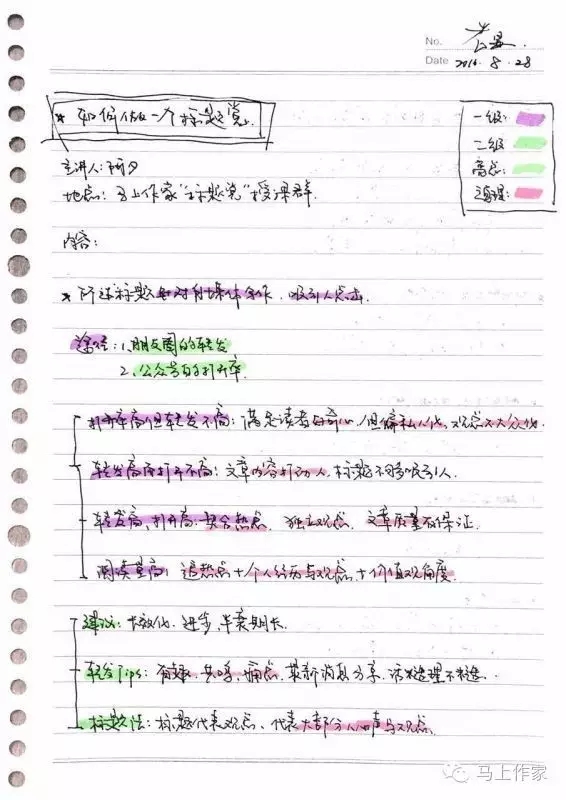 No.
Date 2016. 8. 28
* 如何做一个标题党
一级:
二级:
高亮:
主讲人: 阿夕
地点: 马上作家"标题党"授课群
内容:
* 所谓标题 针对自媒体写作, 吸引人点击.
途径: 1.朋友圈的转发
2.公众号的打开率
打开率高但转发不高: 满足读者好奇心, 但偏私人化, 观点不大众化
转发高而打开不高: 文章内容打动人, 标题不够吸引人
转发高, 打开高: 契合热点, 独立观点, 文章质量有保证.
阅读量高: 追热点+个人经历与观点+价值观角度
建议: 进步
转发Tips: 有趣, 共鸣, 痛点, 最新消息分享
标题法: 标题代表观点, 代表大部分人心声与观点.
马上作家